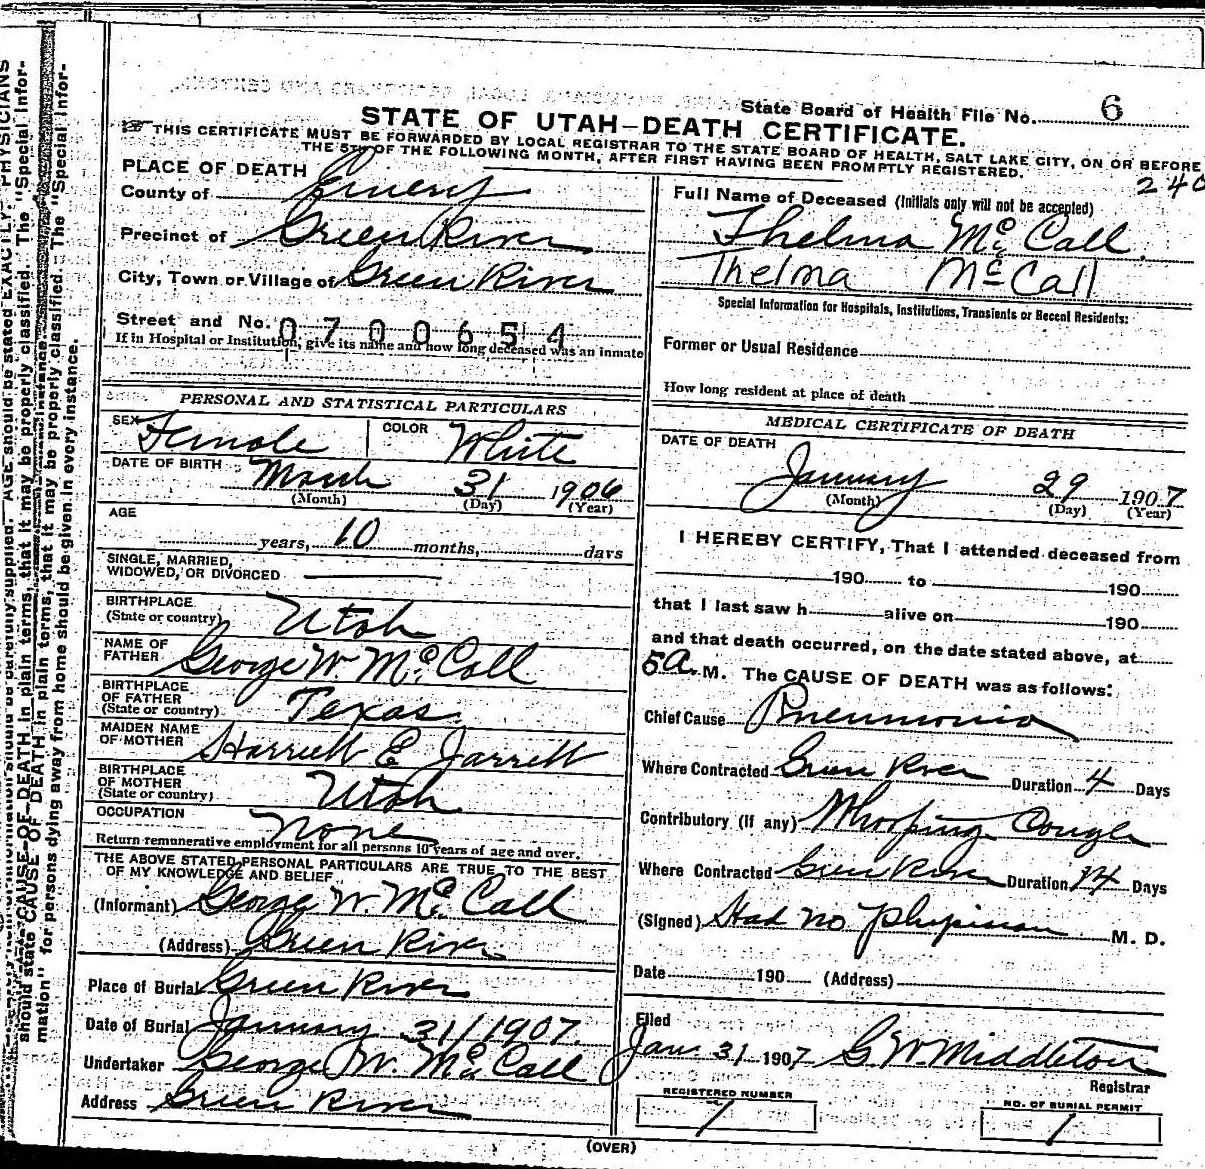 State Board of Health File No. 6
STATE OF UTAH—DEATH CERTIFICATE.
THIS CERTIFICATE MUST BE FORWARDED BY LOCAL REGISTRAR TO THE STATE BOARD OF HEALTH, SALT LAKE CITY, ON OR BEFORE
THE 5TH OF THE FOLLOWING MONTH, AFTER FIRST HAVING BEEN PROMPTLY REGISTERED.
240
PLACE OF DEATH
County of Emery
Precinct of Green River
City, Town or Village of Green River
Street and No. 0700654
If in Hospital or Institution, give its name and how long deceased was an inmate
Full Name of Deceased (Initials only will not be accepted)
Thelma McCall.
Thelma McCall
Special Information for Hospitals, Institutions, Transients or Recent Residents:
Former or Usual Residence
How long resident at place of death
PERSONAL AND STATISTICAL PARTICULARS
SEX Female COLOR White
DATE OF BIRTH March 31 1906
(Month) (Day) (Year)
AGE
years, 10 months, days
SINGLE, MARRIED,
WIDOWED, OR DIVORCED
BIRTHPLACE
(State or country) Utah
NAME OF
FATHER George W. McCall
BIRTHPLACE
OF FATHER
(State or country) Texas
MAIDEN NAME
OF MOTHER Harriett E Jarrett
BIRTHPLACE
OF MOTHER
(State or country) Utah
OCCUPATION none
Return remunerative employment for all persons 10 years of age and over.
THE ABOVE STATED PERSONAL PARTICULARS ARE TRUE TO THE BEST
OF MY KNOWLEDGE AND BELIEF
(Informant) George W. McCall
(Address) Green River
Place of Burial Green River
Date of Burial January 31/1907.
Undertaker George W. McCall
Address Green River
MEDICAL CERTIFICATE OF DEATH
DATE OF DEATH
January 29 1907
(Month) (Day) (Year)
I HEREBY CERTIFY, That I attended deceased from
190 to 190
that I last saw h alive on 190
and that death occurred, on the date stated above, at
5 a. M. The CAUSE OF DEATH was as follows:
Chief Cause Pneumonia
Where Contracted Green River Duration 4 Days
Contributory (if any) Whooping Cough
Where Contracted Green River Duration 14 Days
(Signed) Had no physician M. D.
Date 190 (Address)
Filed
Jan. 31 1907 G. W. Middleton
Registrar
REGISTERED NUMBER
1
NO. OF BURIAL PERMIT
1
(OVER)
AGE should be stated EXACTLY. PHYSICIANS
should state CAUSE OF DEATH in plain terms, that it may be properly classified. The "Special Infor-
mation" for persons dying away from home should be given in every instance.